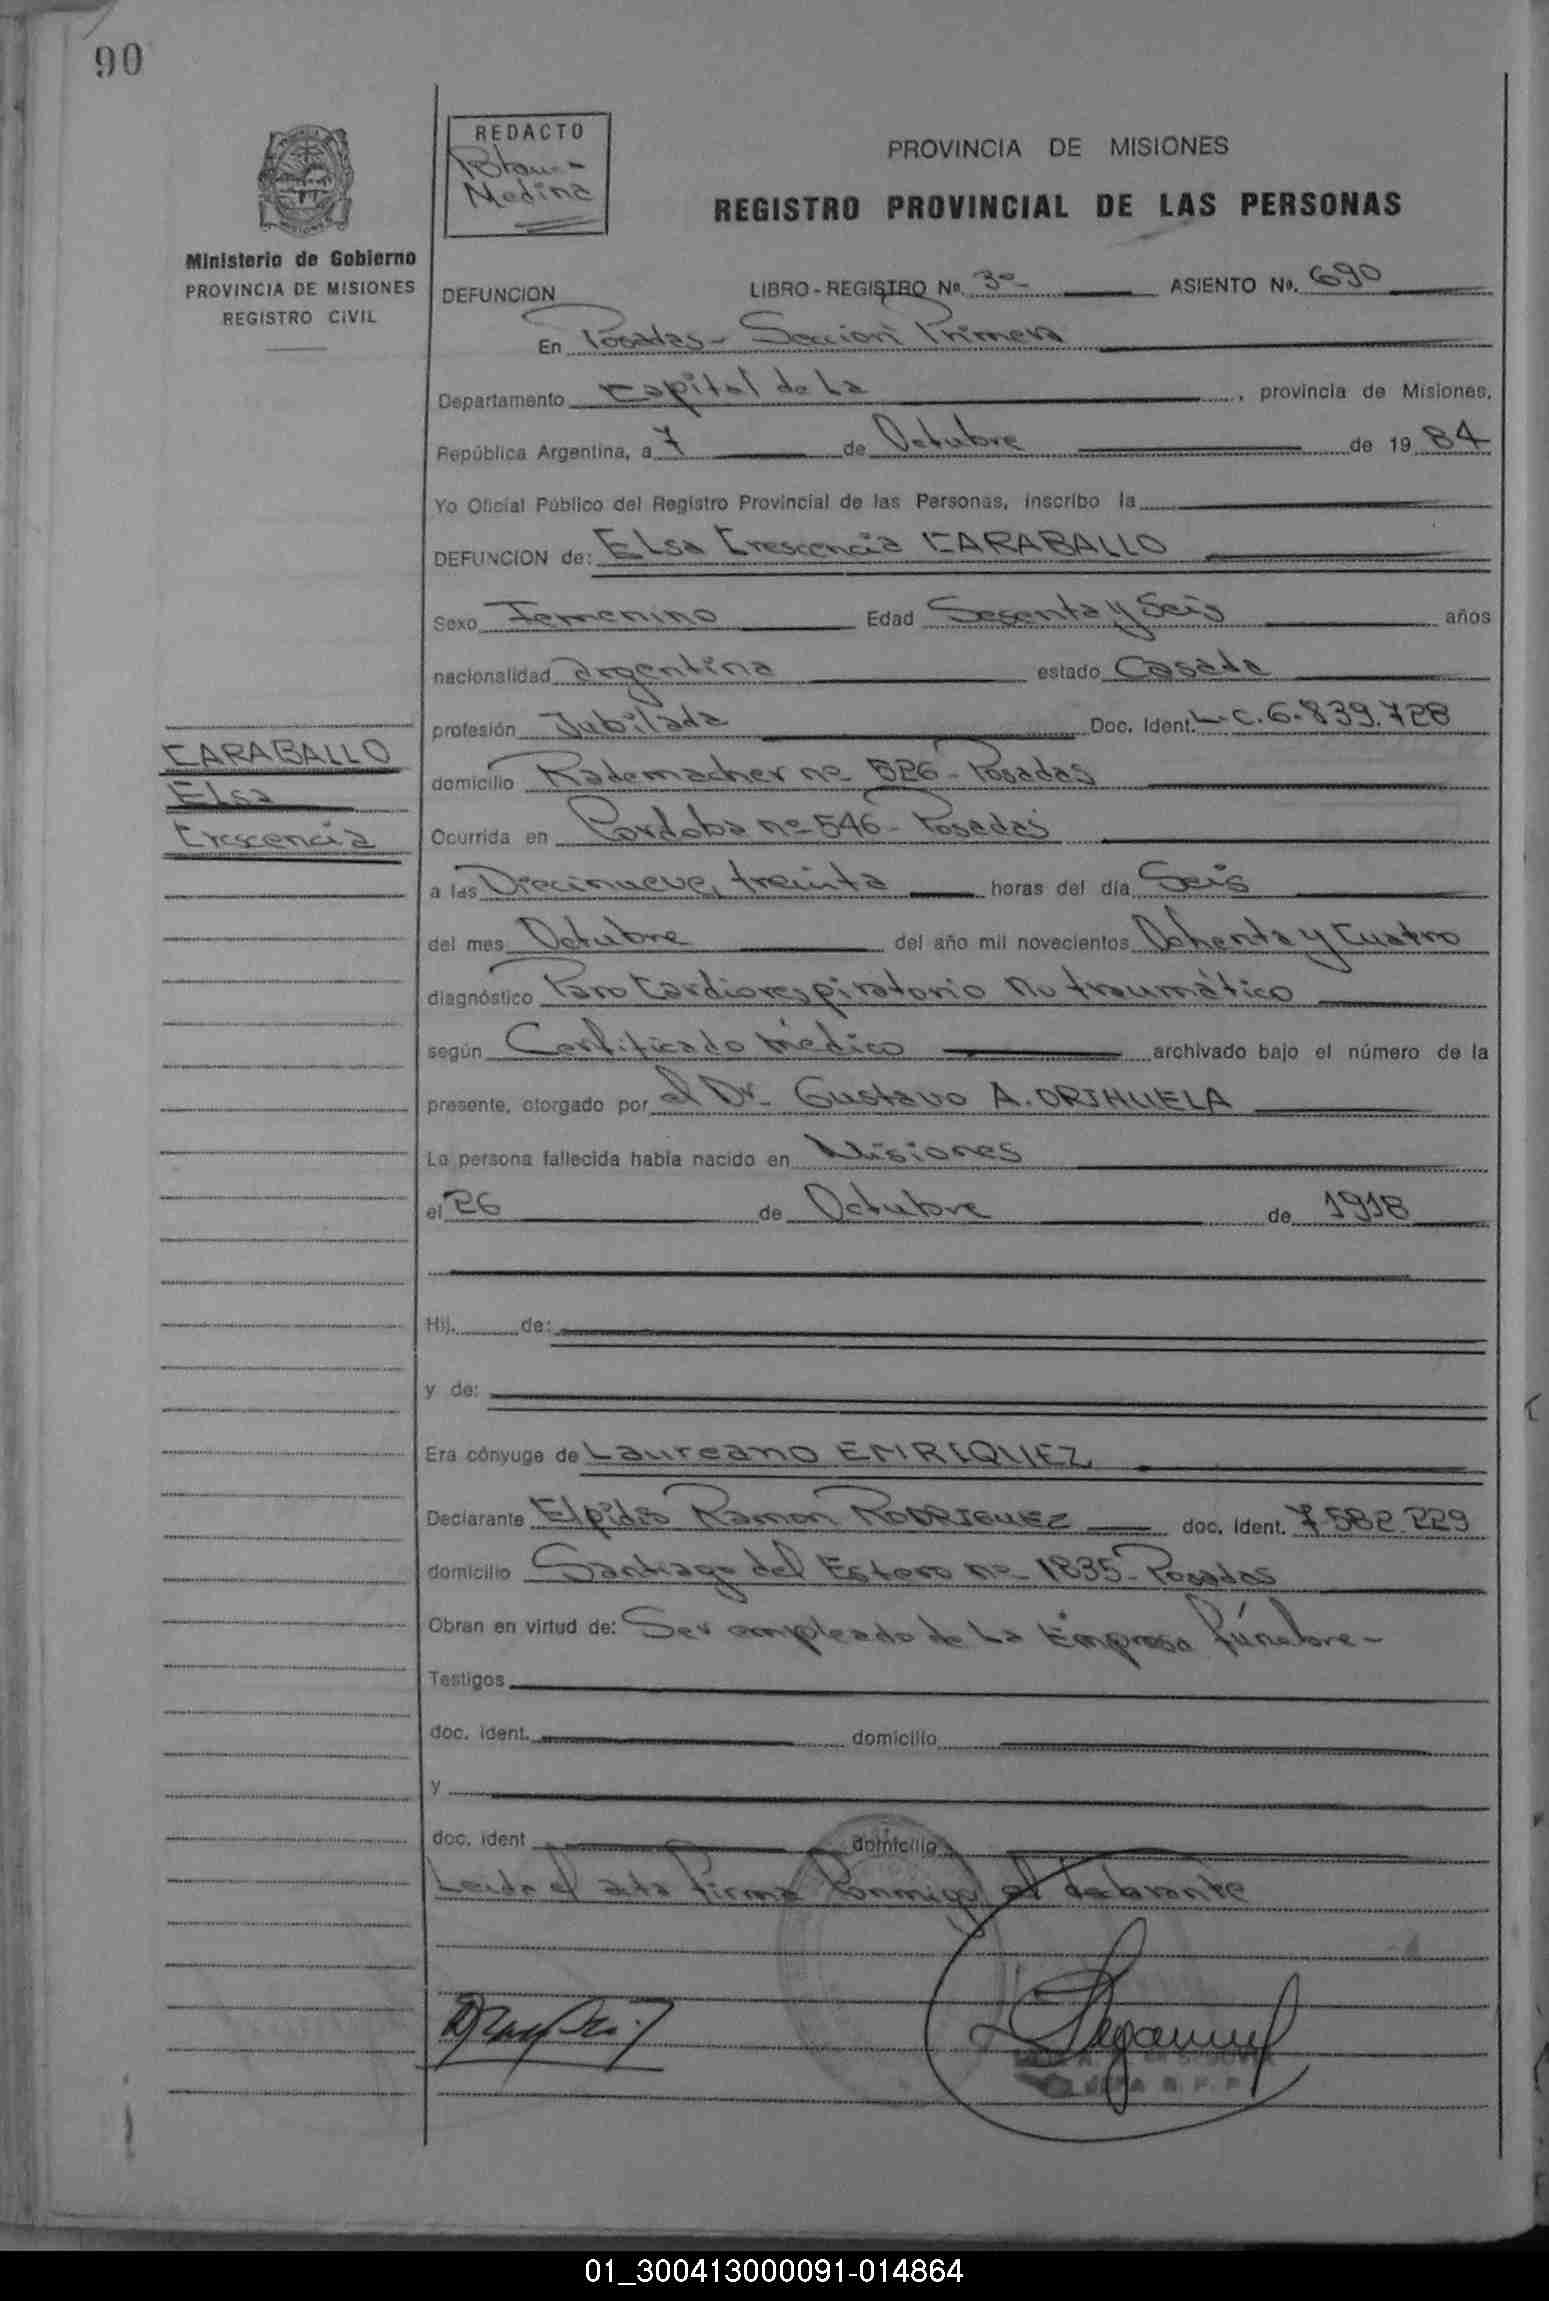 90
REDACTO
Medina
PROVINCIA DE MISIONES
REGISTRO PROVINCIAL DE LAS PERSONAS
Ministerio de Gobierno
PROVINCIA DE MISIONES
REGISTRO CIVIL
DEFUNCION LIBRO-REGISTRO Nº. 3º- ASIENTO Nº. 690
En Posadas - Seccion Primera
Departamento Capital de la, provincia de Misiones,
República Argentina, a 7 de Octubre de 1984
Yo Oficial Público del Registro Provincial de las Personas, inscribo la
DEFUNCION de: Elsa Crescencia CARABALLO
Sexo Femenino Edad Sesenta y Seis años
nacionalidad argentina estado Casada
profesión Jubilada Doc. Ident. L.C.6.839.728
CARABALLO
Elsa
Crescencia
domicilio Rademacher nº 526- Posadas
Ocurrida en Cordoba nº 546- Posadas
a las Diecinueve, treinta horas del día Seis
del mes Octubre del año mil novecientos Ochenta y Cuatro
diagnóstico Paro Cardiorespiratorio no traumático
según Certificado médico archivado bajo el número de la
presente, otorgado por el Dr. Gustavo A. ORIHUELA
La persona fallecida había nacido en Misiones
el 26 de Octubre de 1918
Hij. de:
y de:
Era cónyuge de Laureano ENRIQUEZ
Declarante Elpidio Ramon RODRIGUEZ doc. ident. 7.582.229
domicilio Santiago del Estero nº 1835- Posadas
Obran en virtud de: Ser empleado de la Empresa fúnebre-
Testigos
doc. ident. domicilio
y
doc. ident domicilio
Leida el acta firma Conmigo el declarante
01_300413000091-014864